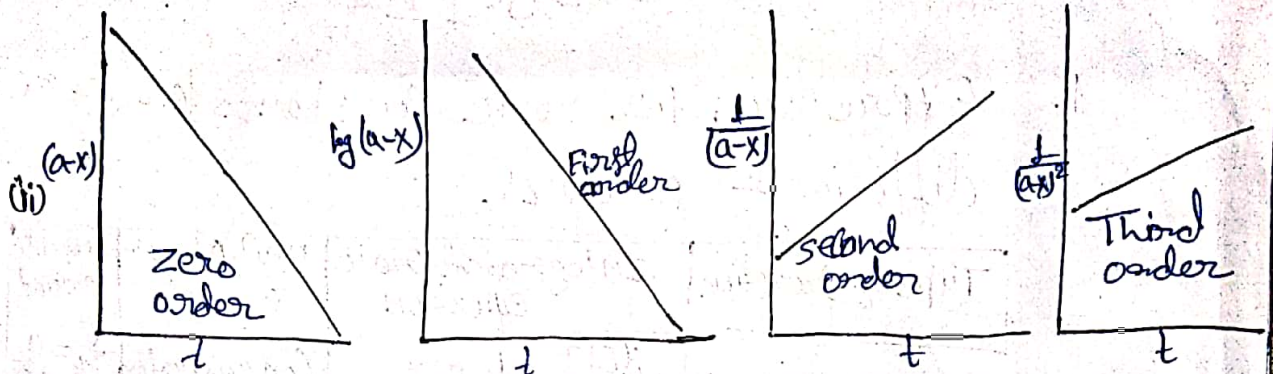 (ii) (a-x)
zero
order
t
log (a-x)
First
order
t
1/(a-x)
second
order
t
1/(a-x)²
Third
order
t